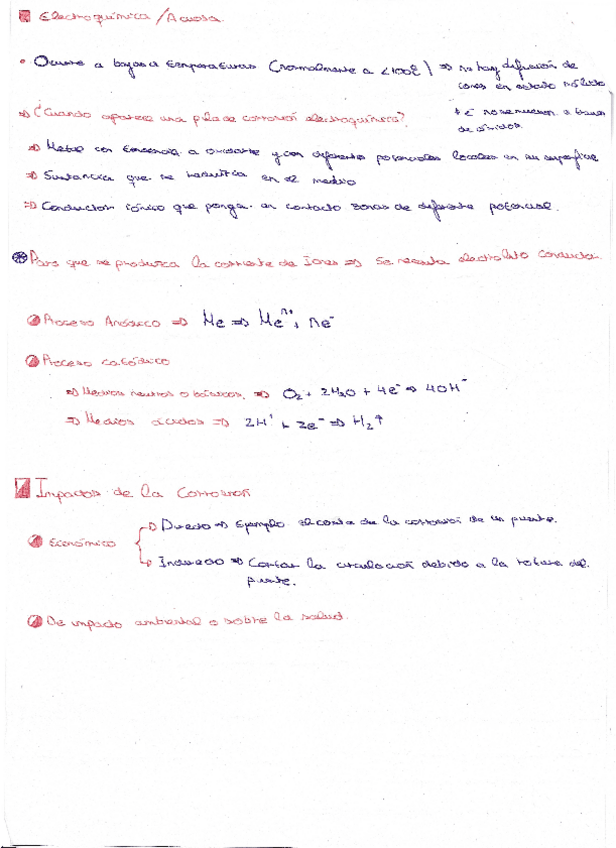 Electroquímica/Acuosa
• Ocurre a bajas temperaturas (normalmente a <100ºC) ⇒ no hay difusión de
iones en estado sólido
* e⁻ no se mueven a través
de óxidos.
⇒ ¿Cuando aparece una pila de corrosión electroquímica?
⇒ Metal con tendencia a oxidarse y con diferentes potenciales locales en su superficie
⇒ Sustancia que se reduzca en el medio
⇒ Conductor iónico que ponga en contacto zonas de diferente potencial.
Para que se produzca la corriente de Iones ⇒ Se necesita electrolito conductor.
Proceso Anódico ⇒ Me ⇒ Meⁿ⁺, ne⁻
Proceso catódico
⇒ Medios neutros o básicos. ⇒ O₂ + 2H₂O + 4e⁻ ⇒ 4OH⁻
⇒ Medios ácidos ⇒ 2H⁺ + 2e⁻ ⇒ H₂↑
Impactos de la Corrosión
Económico
Directo ⇒ Ejemplo el coste de la corrosión de un puente.
Indirecto ⇒ Cortar la circulación debido a la rotura del
puente.
De impacto ambiental o sobre la salud.